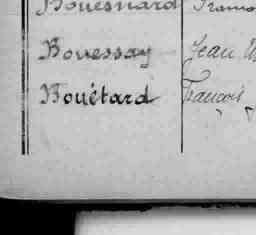 Bouesnard
Bouessay Jean
Bouëtard François